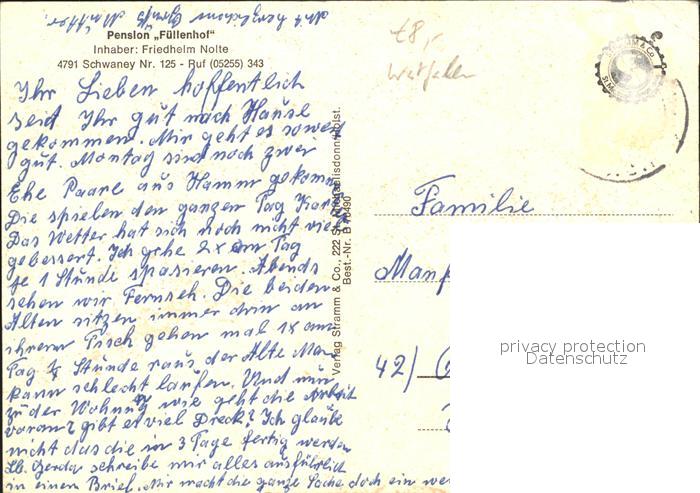 Mit herzlichem Gruß Mutter.
Pension „Füllenhof"
Inhaber: Friedhelm Nolte
4791 Schwaney Nr. 125 - Ruf (05255) 343
Ihr Lieben hoffentlich
seid Ihr gut nach Hause
gekommen. Mir geht es soweit
gut. Montag sind noch zwei
Ehe Paare aus Hamm gekommen
Die spielen den ganzen Tag Karten
Das Wetter hat sich noch nicht viel
gebessert. Ich gehe 2x am Tag
je 1 Stunde spasieren. Abends
sehen wir Fernseh. Die beiden
Alten sitzen immer drin an
ihrem Tisch gehen mal 1x am
Tag ½ Stunde raus der Alte Mann
kann schlecht laufen. Und nun
zu der Wohnung wie geht die Arbeit
voran? gibt es viel Dreck? Ich glaube
nicht das die in 3 Tage fertig werden
Lb. Gerda schreibe mir alles ausführlich
in einem Brief. Mir macht die ganze Sache doch ein we
Verlag Stramm & Co., 222 St. Michaelisdonn/Holst.
Best.-Nr. B
48,-
Westfalen
M & Co.
St. M
S
Familie
Manf
42/
privacy protection
Datenschutz